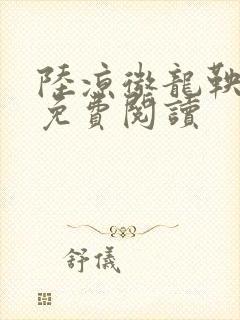 陸涼徵龍鞅
免費閱讀
舒儀